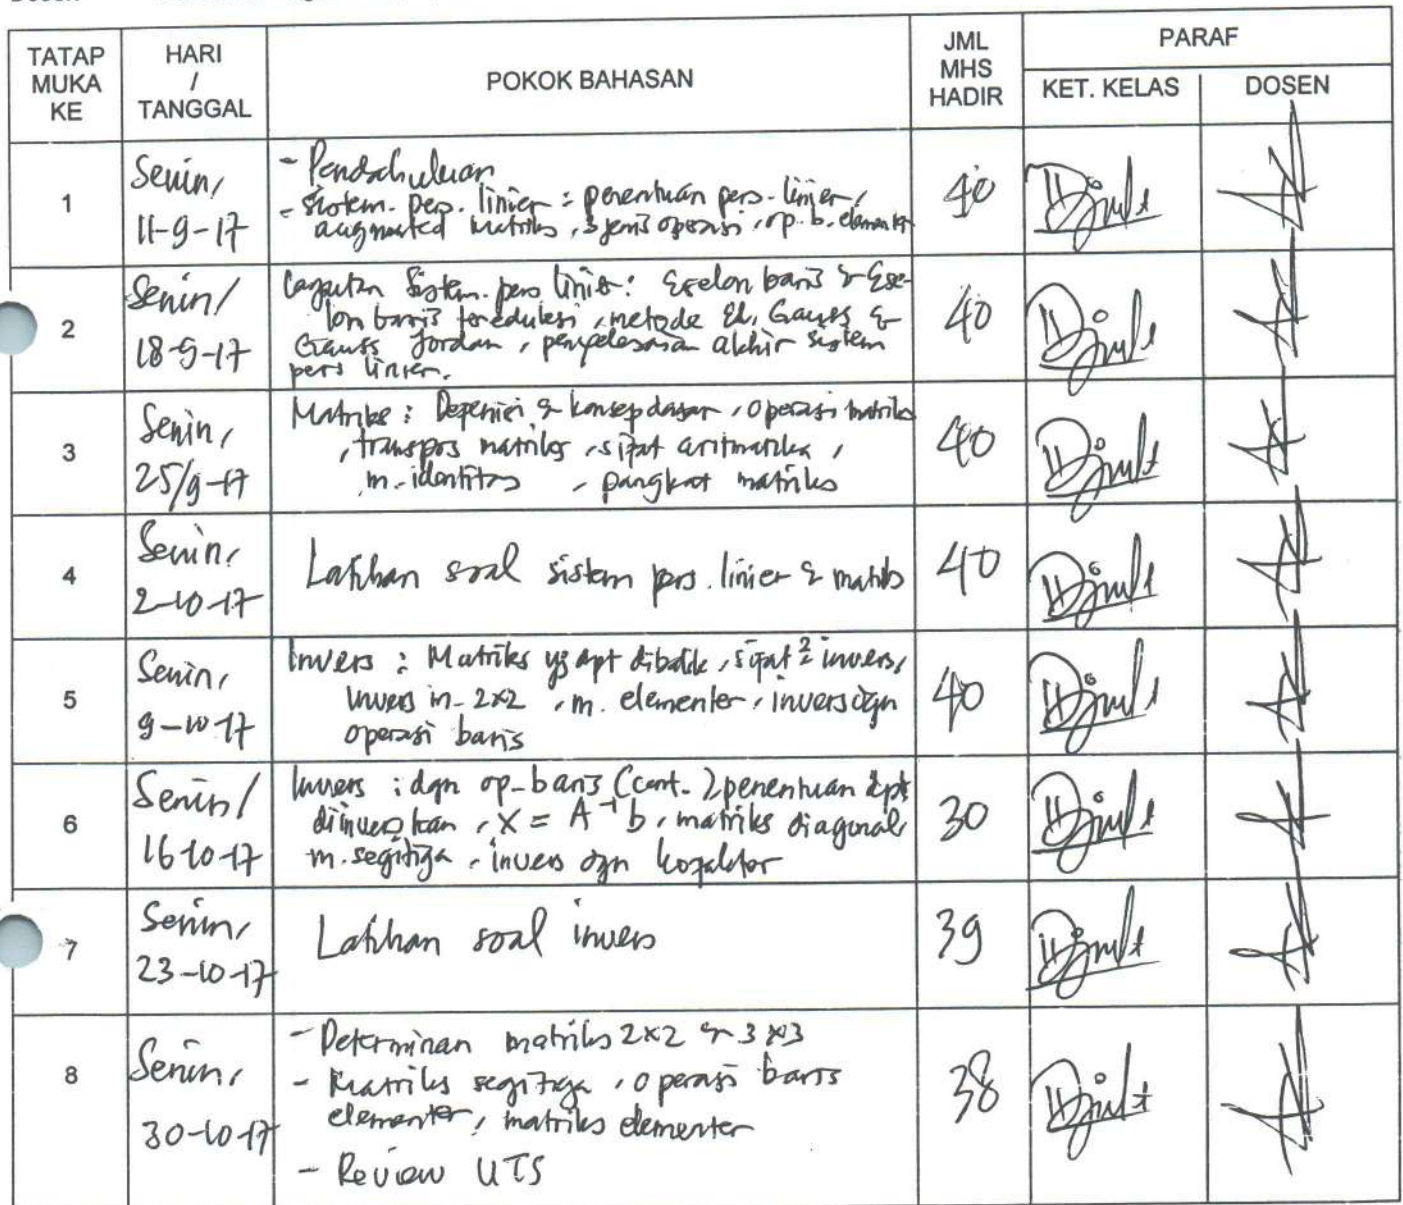 TATAP MUKA KE
HARI / TANGGAL
POKOK BAHASAN
JML MHS HADIR
PARAF
KET. KELAS
DOSEN
1
Senin,
11-9-17
- Pendahuluan
- Sistem. pers. linier : penentuan pers. linier,
augmented matriks, 3 jenis operasi, op. b. elementer
40
2
Senin/
18-9-17
Lanjutan Sistem. pers linier: Eselon baris & Ese-
lon baris tereduksi, metode El. Gauss &
Gauss Jordan, penyelesaian akhir sistem
pers linier.
40
3
Senin,
25/9-17
Matriks : Defenisi & konsep dasar, operasi matriks
, transpos matriks, sifat aritmatika,
m. identitas, pangkat matriks
40
4
Senin,
2-10-17
Latihan soal sistem pers. linier & matriks
40
5
Senin,
9-10-17
Invers : Matriks yg dpt dibalik, sifat² invers,
invers m. 2x2, m. elementer, invers dgn
operasi baris
40
6
Senin/
16-10-17
Invers : dgn op-baris (cont.) penentuan dpt
diinverskan, X = A⁻¹b, matriks diagonal,
m. segitiga, invers dgn kofaktor
30
7
Senin,
23-10-17
Latihan soal invers
39
8
Senin,
30-10-17
- Determinan matriks 2x2 & 3x3
- Matriks segitiga, operasi baris
elementer, matriks elementer
- Review UTS
38